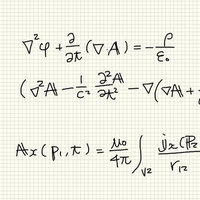 ∇²φ + ∂/∂t (∇·A) = −ρ/ε₀
(∇²A − 1/c² ∂²A/∂t² − ∇(∇A +
Ax(p₁,t) = μ₀/4π ∫V2 jx(P₂ / r₁₂